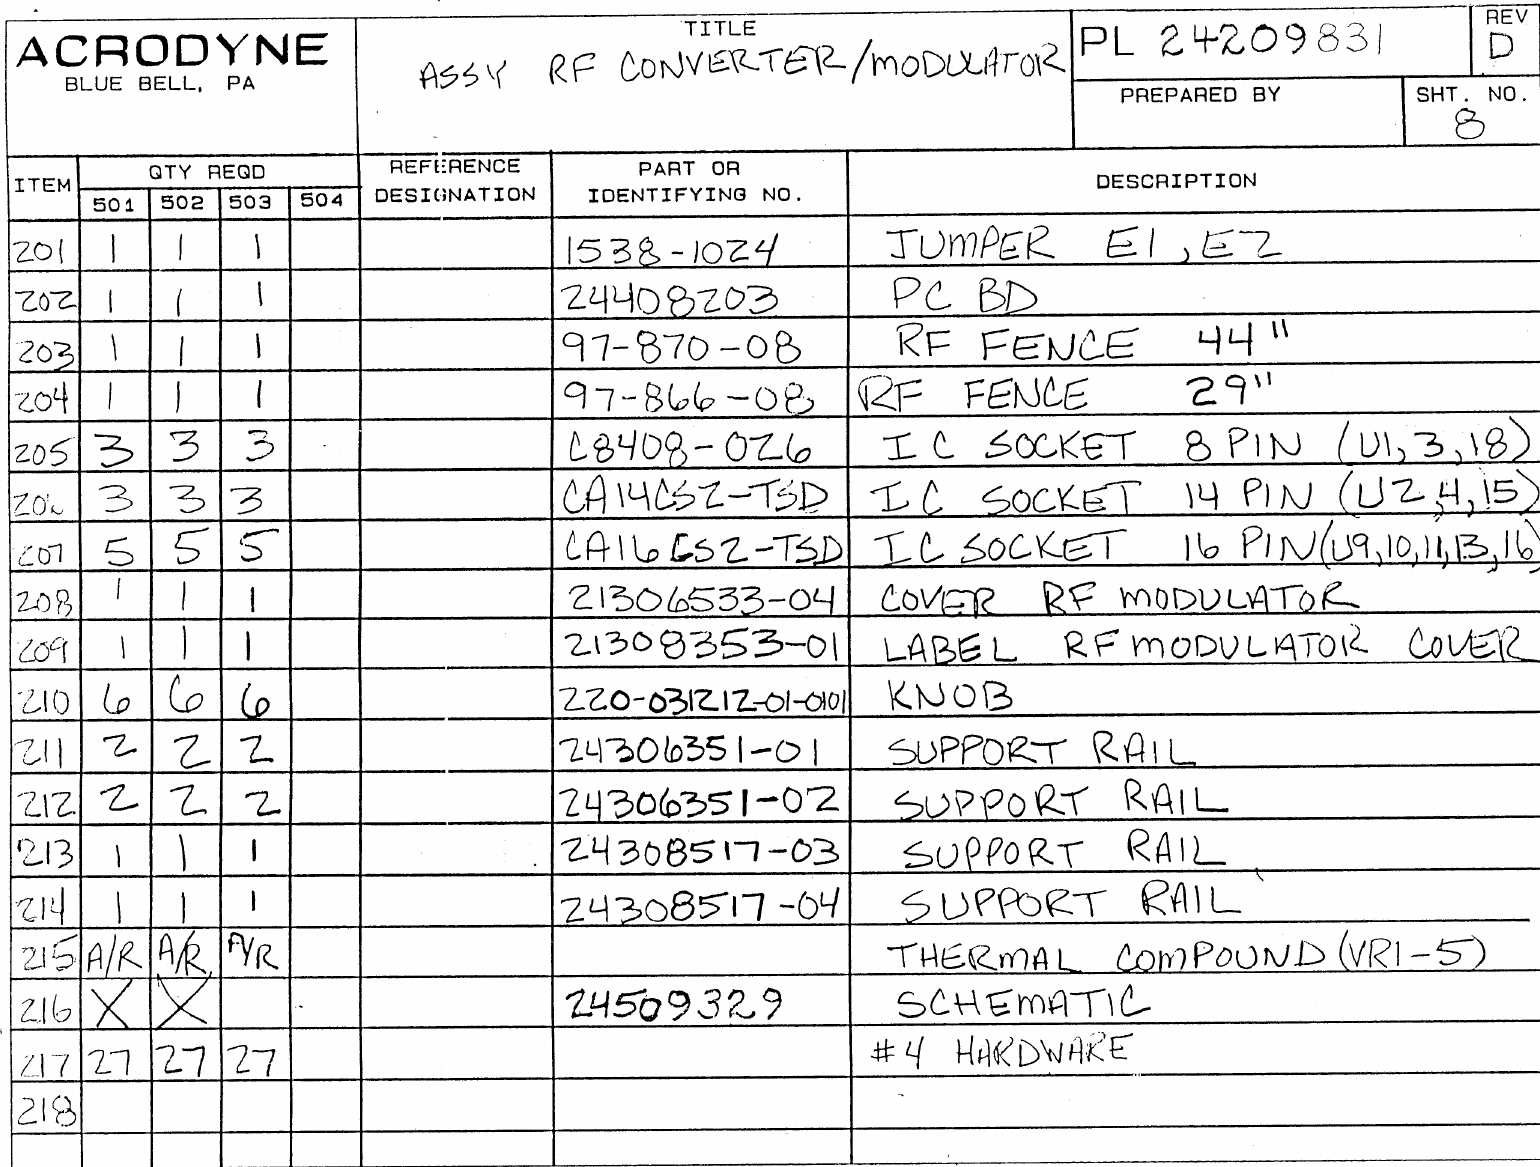 ACRODYNE
BLUE BELL, PA
TITLE
ASSY RF CONVERTER/MODULATOR
PL 24209831
REV
D
PREPARED BY
SHT. NO.
8
ITEM
QTY REQD
501 502 503 504
REFERENCE
DESIGNATION
PART OR
IDENTIFYING NO.
DESCRIPTION
201 1 1 1 1538-1024 JUMPER E1, E2
202 1 1 1 24408203 PC BD
203 1 1 1 97-870-08 RF FENCE 44"
204 1 1 1 97-866-08 RF FENCE 29"
205 3 3 3 C8408-026 IC SOCKET 8 PIN (U1,3,18)
206 3 3 3 CA14CS2-TSD IC SOCKET 14 PIN (U2,4,15)
207 5 5 5 CA16CS2-TSD IC SOCKET 16 PIN(U9,10,11,13,16)
208 1 1 1 21306533-04 COVER RF MODULATOR
209 1 1 1 21308353-01 LABEL RF MODULATOR COVER
210 6 6 6 220-031212-01-0101 KNOB
211 2 2 2 24306351-01 SUPPORT RAIL
212 2 2 2 24306351-02 SUPPORT RAIL
213 1 1 1 24308517-03 SUPPORT RAIL
214 1 1 1 24308517-04 SUPPORT RAIL
215 A/R A/R A/R THERMAL COMPOUND (VR1-5)
216 X X 24509329 SCHEMATIC
217 27 27 27 #4 HARDWARE
218